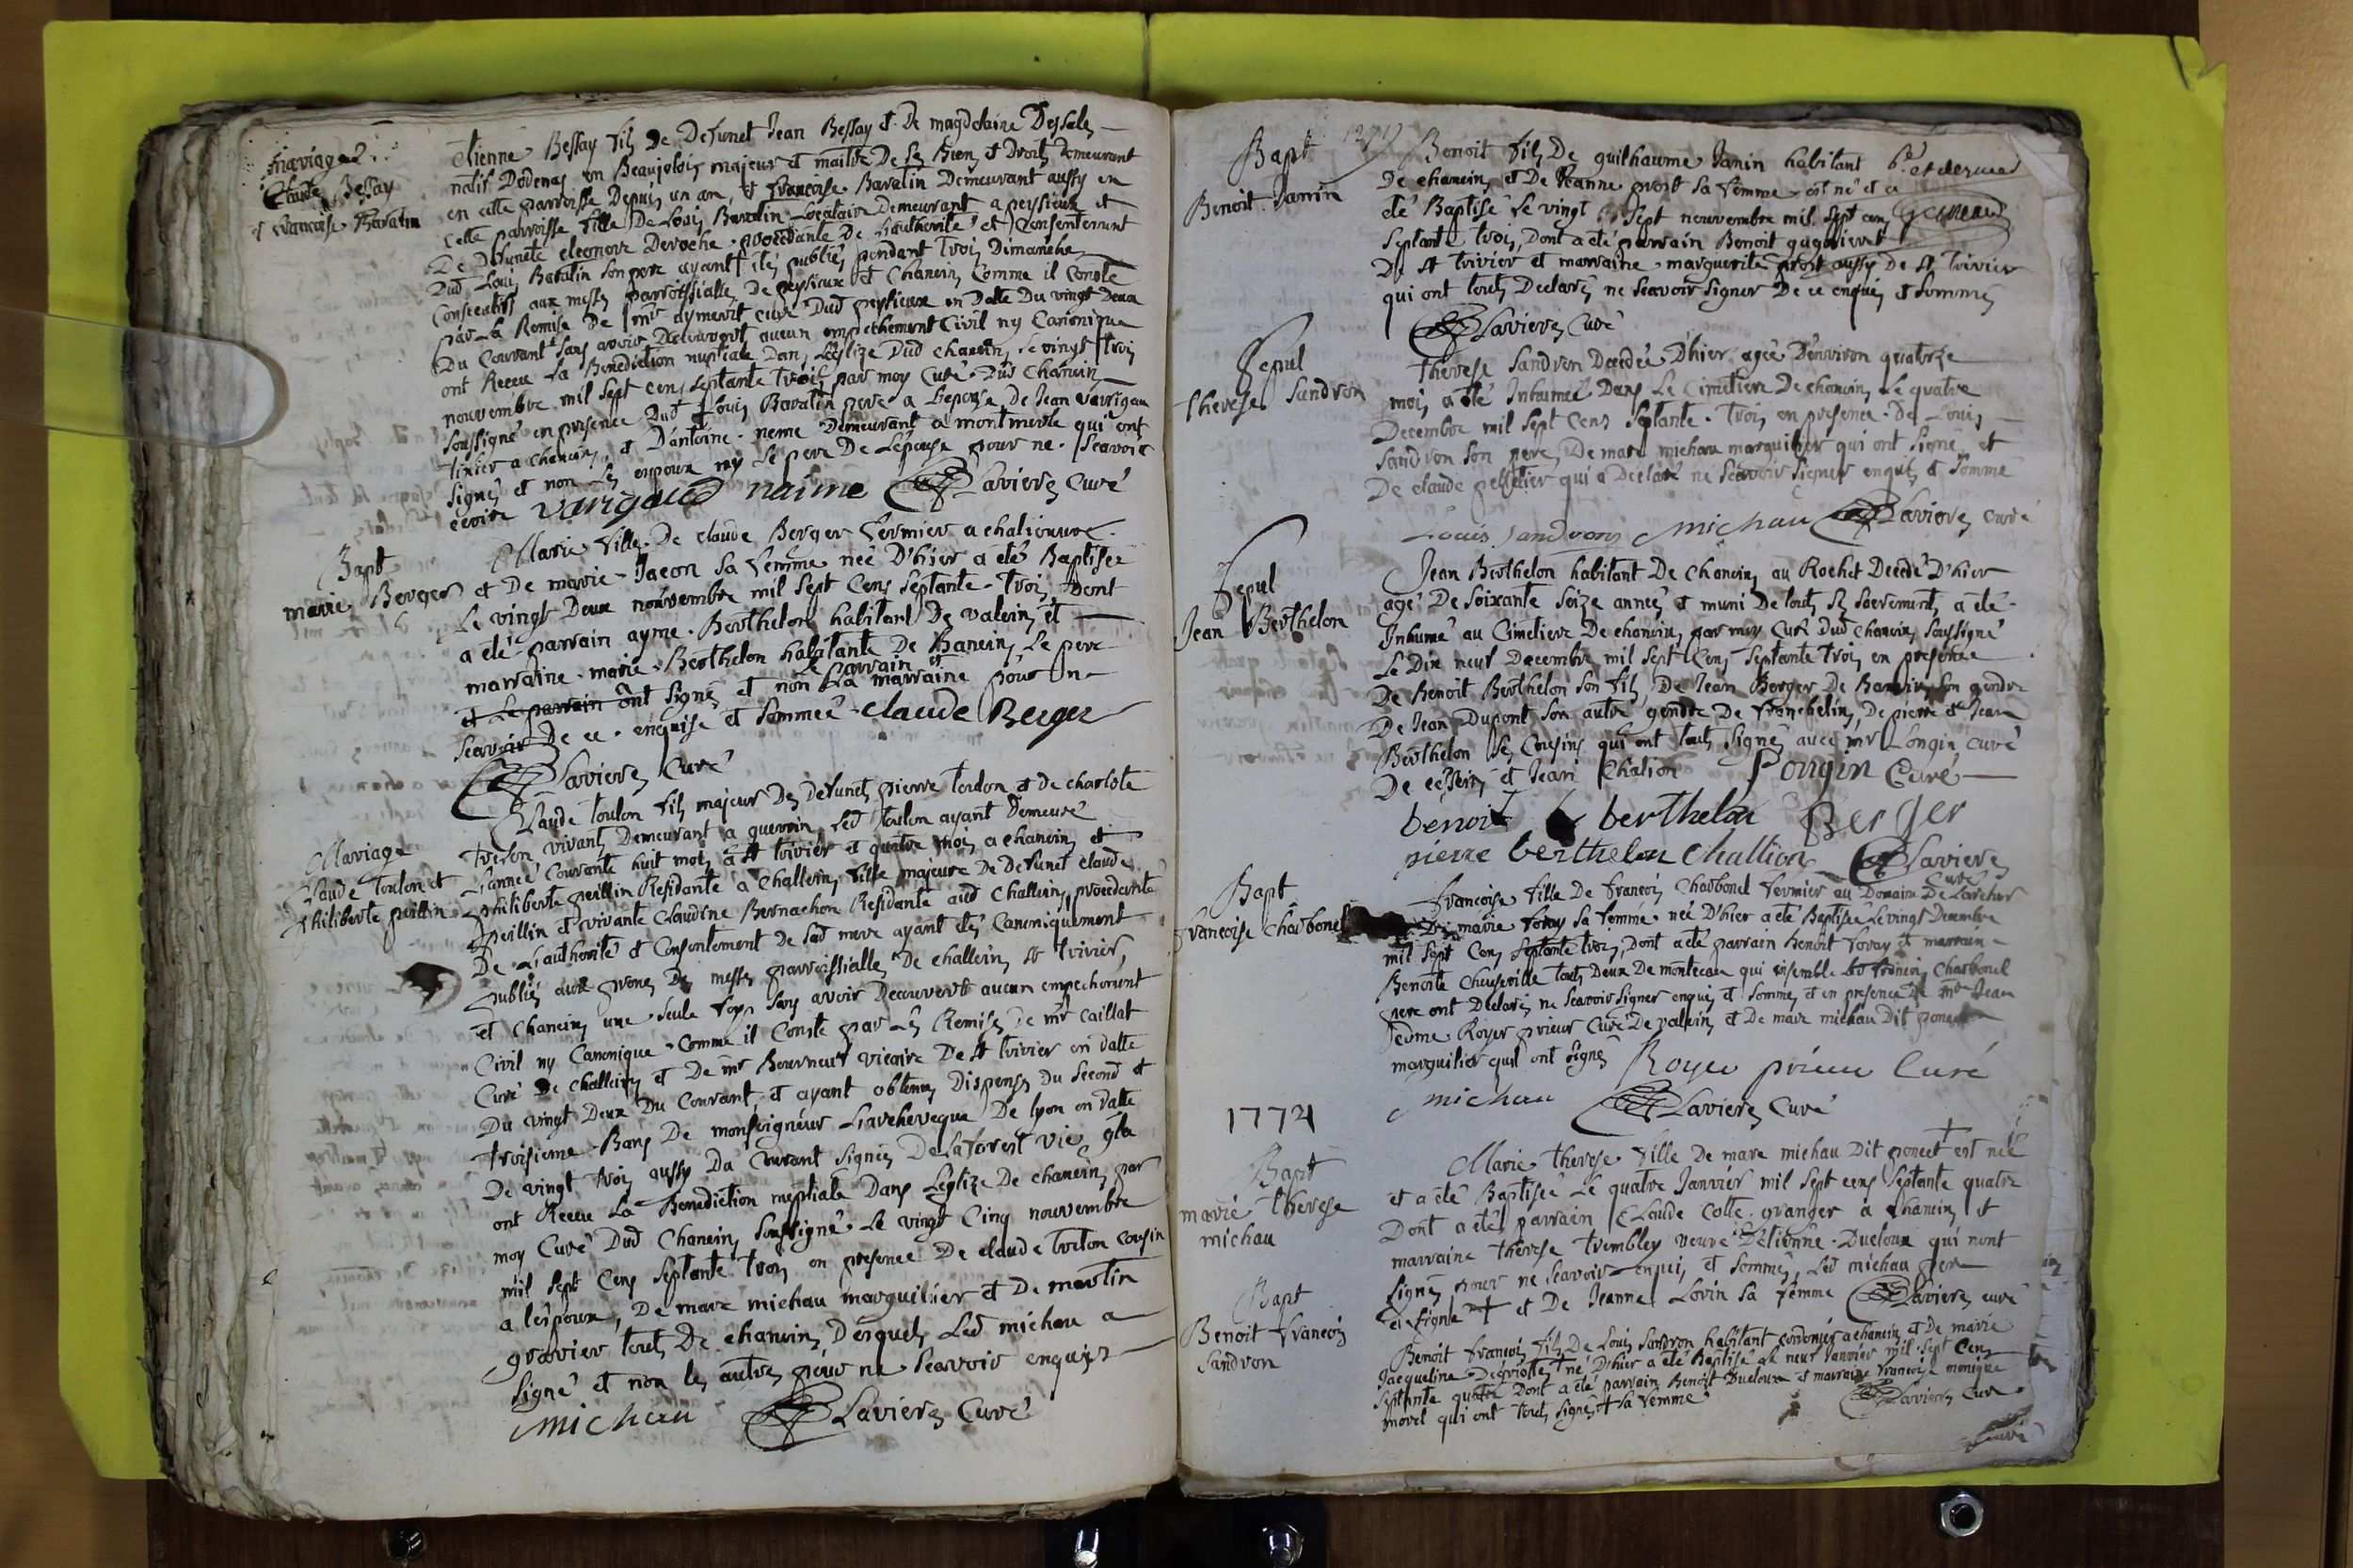 mariage
Claude Bessay
et francoise Baratin
Etienne Bessay fils De Defunct Jean Bessay et De magdelaine Dessales
natif Dodenas en Beaujolois majeur et maitre De ses Biens et Droits Demeurant
en cette parroisse Depuis un an, et francoise Baratin Demeurant aussy en
cette parroisse fille De Louis Baratin Locataire Demeurant a peysieux et
De Defuncte eleonore Deroche procedante De Lauthorité et Consentement
Dud Louis Baratin son pere ayant étés publiés pendant trois Dimanches
Consecutifs aux messes parroissialles De peysieux et Chanein Comme il Conste
par La Remise De mr aymerit curé Dud peysieux en Datte Du vingt Deux
Du Courant sans avoir Decouvert aucun empechement Civil ny Canonique
ont Receu La Benediction nuptiale Dans L'Eglize Dud chanein, le vingt trois
nouvembre mil sept cens septante trois par moy Curé Dud Chanein
soussigné en presence Dud Louis Baratin pere a L'epouse De Jean Varrigau
tixier a Chanein, et D'antoine neme Demeurant a montmerle qui ont
signés et non Les epoux ny Le pere De L'epouse pour ne sçavoir
ecrire varigaud naime Laviere Curé
Bapt
marie Berger
Marie fille De Claude Berger fermier a chaliouvre
et De marie Jacon sa femme née D'hier a été Baptisée
Le vingt Deux nouvembre mil sept Cens septante trois Dont
a été parrain ayme Berthelon habitant De valein, et
marraine marie Berthelon habitante De Banein, Le pere
Le parrain et
et Le parrain ont signés et non La marraine pour ne
sçavoir De ce enquise et sommée claude Berger
Laviere Curé
Mariage
Claude toulon et
philiberte peillin
Claude toulon fils majeur Des defuncts pierre toulon et de charlote
vivants Demeurant a guerrein, Led toulon ayant Demeuré
L'année Courante huit mois a St trivier et quatre mois a chanein, et
philiberte peillin Residante a Challein, fille majeure De Defunct claude
peillin et vivante Claudine Bernachon Residante aud Challein, procedante
De L'authorité et Consentement de sad mere ayant étés Canoniquement
publiés aux prones Des messes parroissialles De challein, St trivier,
et Chanein, une seule fois sans avoir Decouvert aucun empechement
Civil ny Canonique Comme il Conste par Les Remises De mr Caillat
Curé De Challein, et De mr Bourneuf vicaire De St trivier en datte
Du vingt Deux Du Courant, et ayant obtenu Dispenses Du second et
troisieme Bans De monseigneur L'archeveque De lyon en datte
De vingt trois aussy Du Courant signées De La forest vic gla
ont Receu La Benediction nuptiale Dans L'eglize De chanein, par
moy Curé Dud Chanein, soussigné Le vingt Cinq nouvembre
mil sept Cens septante trois en presence De claude toulon cousin
a l'epoux, De marc michau marguilier et De martin
gravier touts De chanein, Desquels Led michau a
signé et non les autres pour ne sçavoir enquis
michau Laviere Curé
Bapt
Benoit Janin
Benoit fils De guilhaume Janin habitant
De chanein, et De Jeanne prost sa femme est né et a
été Baptisé Le vingt sept nouvembre mil sept cens
septante trois, Dont a été parrain Benoit
De St trivier et marraine marguerite prost aussy De St trivier
qui ont touts Declarés ne sçavoir signer De ce enquis et sommés
Laviere Curé
Sepul
therese Sandron
therese Sandron Decedée D'hier agée D'environ quatorze
mois a été Inhumée Dans Le Cimetiere De chanein, Le quatre
Decembre mil sept Cens septante trois, en presence De Louis
Sandron son pere, De marc michau marguilier qui ont signé, et
De claude pelletier qui a Declaré ne sçavoir signer enquis et sommé
Louis sandron michau Laviere curé
Sepul
Jean Berthelon
Jean Berthelon habitant De Chanein, au Rochet Decedé D'hier
agé De soixante seize années et muni De touts ses sacrements a été
Inhumé au Cimetiere De chanein, par moy Curé Dud Chanein, soussigné
Le Dix neuf Decembre mil sept Cens septante trois en presence
De Benoit Berthelon son fils, De Jean Berger De Banein, son gendre
De Jean Dupont son autre gendre De francheleins, De pierre et Jean
Berthelon ses Cousins qui ont touts signés avec mr Longin curé
De et Jean Chalion Pongin Curé
benoit berthelon Berger
pierre berthelon Challion Laviere
Curé
Bapt
francoise Charbonel
francoise fille De francois Charbonel fermier au Domaine De
et De marie foray sa femme née D'hier a été Baptisée Le vingt Decembre
mil sept Cens septante trois, Dont a été parrain Benoit foray et marraine
Benoite Cheuseville touts Deux De monteceau qui ensemble Led francois Charbonel
pere ont Declarés ne sçavoir signer enquis et sommés et en presence De mre Jean
edme Royer prieur Curé De valein, et De marc michau Dit poncet
marguilier qui ont signés Royer prieur Curé
michau Laviere Curé
1774
Bapt
marie therese
michau
Marie therese fille De marc michau Dit poncet + est née
et a été Baptisée Le quatre Janvier mil sept cens septante quatre
Dont a été parrain Claude Colle granger a Chanein, et
marraine therese trembley veuve D'Etienne Ducloux qui nont
signés pour ne sçavoir enquis, et sommés, Led michau pere
a signé + et De Jeanne Lovin sa femme Laviere curé
Bapt
Benoit francois
Sandron
Benoit francois fils De Louis Sandron habitant cordonier a chanein, et De marie
Jacqueline Degriottes + né D'hier a été Baptisé Le neuf Janvier mil sept Cens
septante quatre Dont a été parrain Benoit Ducloux et marraine francoise monique
morel qui ont touts signés + sa femme Laviere Curé